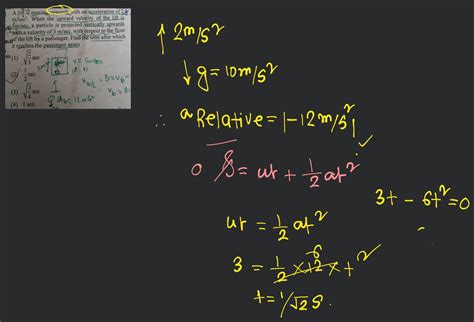 A lift is moving upwards with an acceleration of 2
m/sec². When the upward velocity of the lift is
a particle is projected vertically upwards
with a velocity of 3 m/sec. with respect to the floor
of the lift by a passenger. Find the time after which
it reaches the passenger again
(1) sec
(2) 1/2 sec
(3) sec
(4) 1 sec.
↑ 2m/s²
↓ g = 10m/s²
∴ a Relative = |-12m/s²|
0 S = ut + 1/2 at²
3t - 6t² = 0
ut = 1/2 at²
3 = 1/2 × 12 × t²
6
t = 1/√2 S.